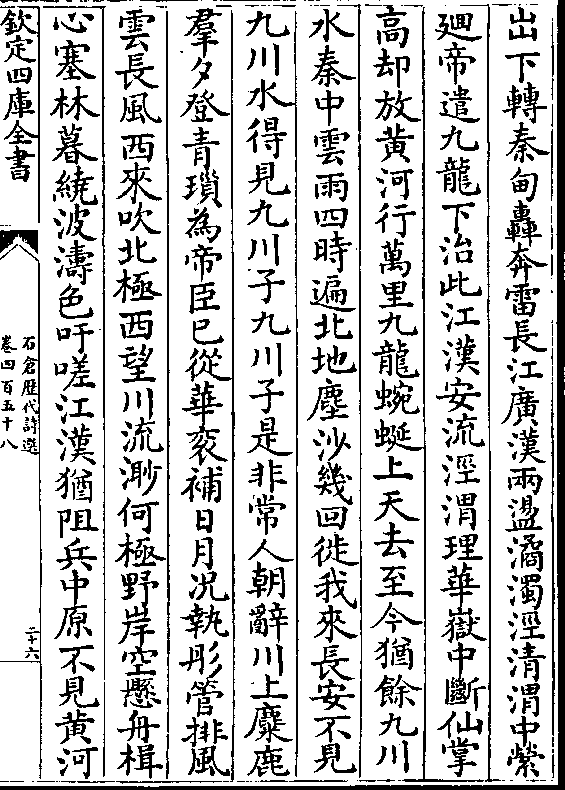 出下轉秦甸轟奔雷長江廣漢兩盪潏濁涇清渭中縈
廻帝遣九龍下治此江漢安流涇渭理華嶽中斷仙掌
高却放黄河行萬里九龍蜿蜒上天去至今猶餘九川
水秦中雲雨四時遍北地塵沙幾回徙我來長安不見
九川水得見九川子九川子是非常人朝辭川上麋鹿
羣夕登青瑣為帝臣已從華衮補日月况執彤管排風
雲長風西來吹北極西望川流渺何極野岸空懸舟楫
心塞林暮繞波濤色吁嗟江漢猶阻兵中原不見黄河
欽定四庫全書
石倉歴代詩選
卷四百五十八
二十六